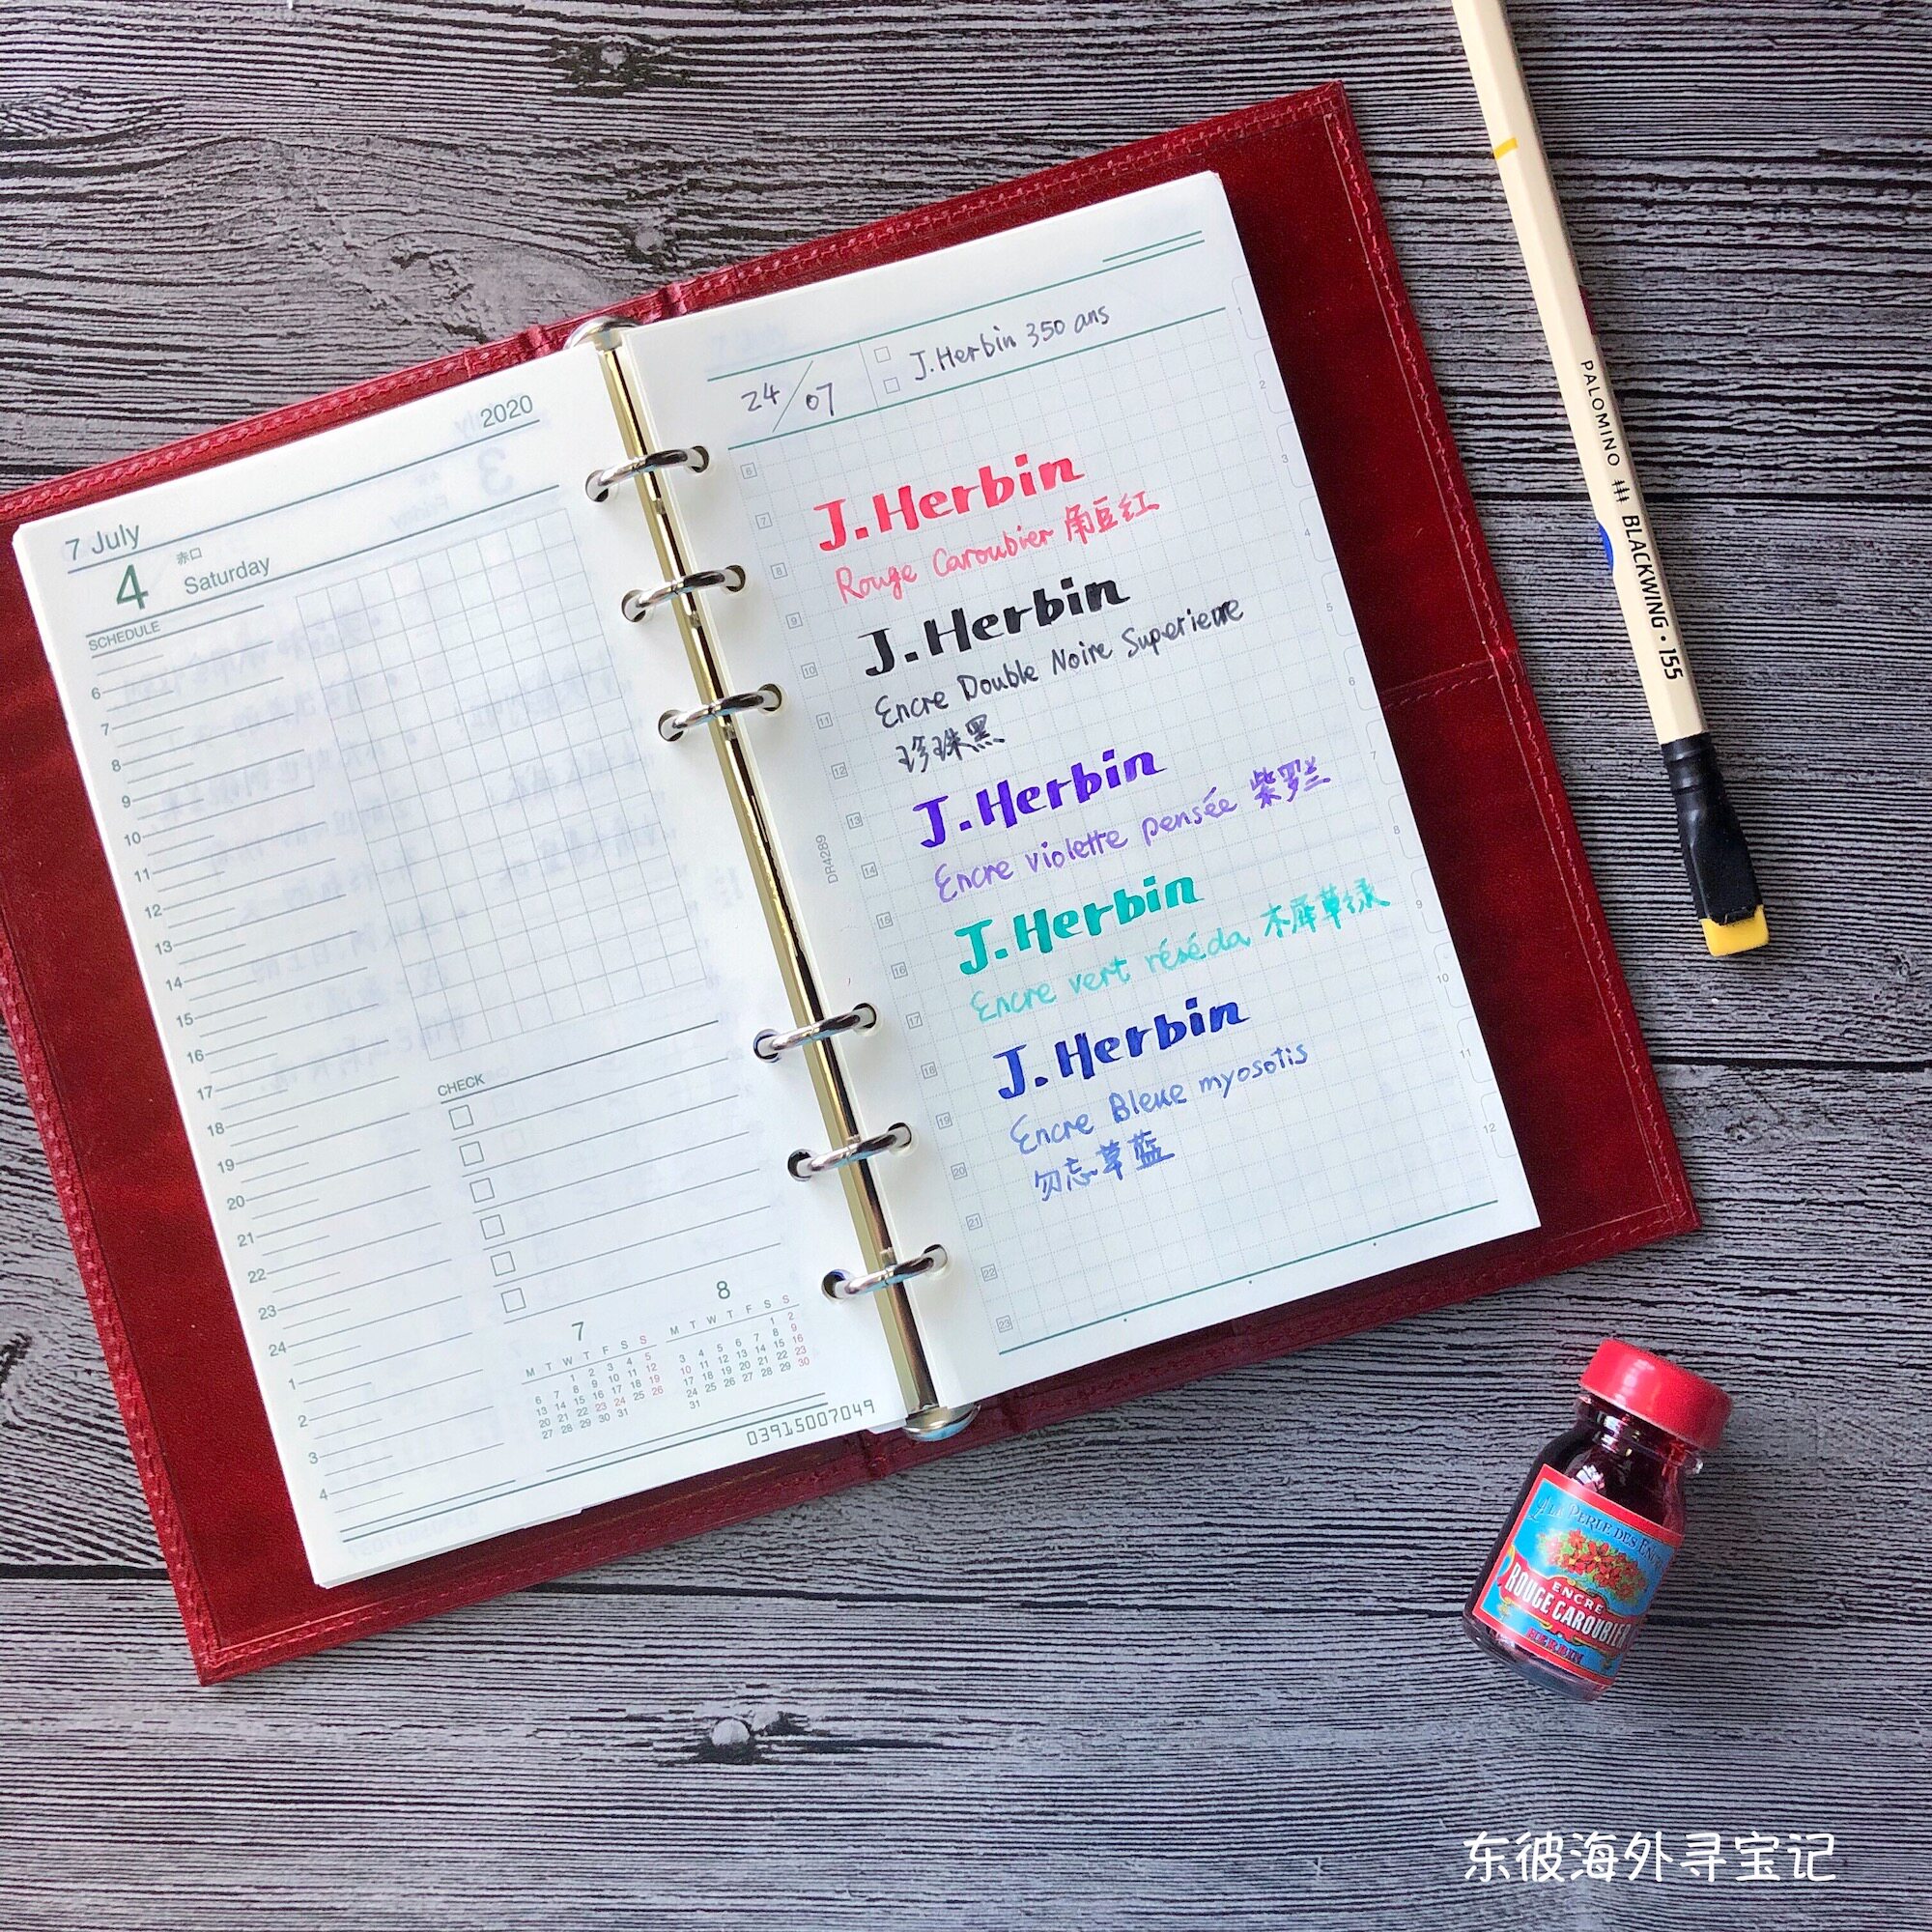 2020
7 July
4
赤口
Saturday
SCHEDULE
6
7
8
9
10
11
12
13
14
15
16
17
18
19
20
21
22
23
24
1
2
3
4
CHECK
7
M T W T F S S
1 2 3 4 5
6 7 8 9 10 11 12
13 14 15 16 17 18 19
20 21 22 23 24 25 26
27 28 29 30 31
8
M T W T F S S
1 2
3 4 5 6 7 8 9
10 11 12 13 14 15 16
17 18 19 20 21 22 23
24 25 26 27 28 29 30
31
03915007049
24/07
J.Herbin 350 ans
J.Herbin
Rouge Caroubier 角豆红
J.Herbin
Encre Double Noire Superieure
珍珠黑
J.Herbin
Encre violette pensée 紫罗兰
J.Herbin
Encre vert réséda 木犀草绿
J.Herbin
Encre Bleue myosotis
勿忘草蓝
6
7
8
9
10
11
12
13
14
15
16
17
18
19
20
21
22
23
DR4289
1
2
3
4
5
6
7
8
9
10
11
12
PALOMINO BLACKWING • 155
LA PERLE DES ENC
ENCRE
ROUGE CAROUBIER
HERBIN
东彼海外寻宝记